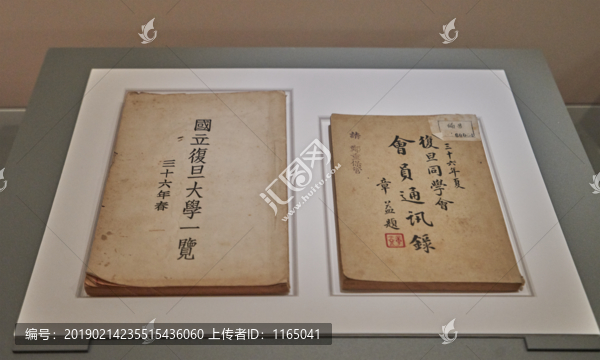 國立復旦大學一覽
三十六年春
三十六年夏
復旦同學會
會員通訊錄
章益題
汇图网
www.huitu.com
编号：20190214235515436060 上传者ID：1165041